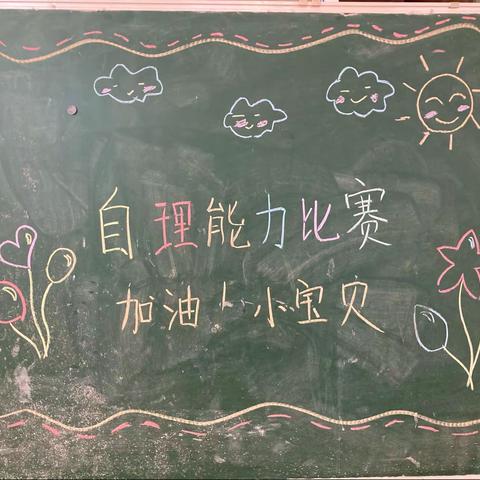 自理能力比赛
加油小小宝贝